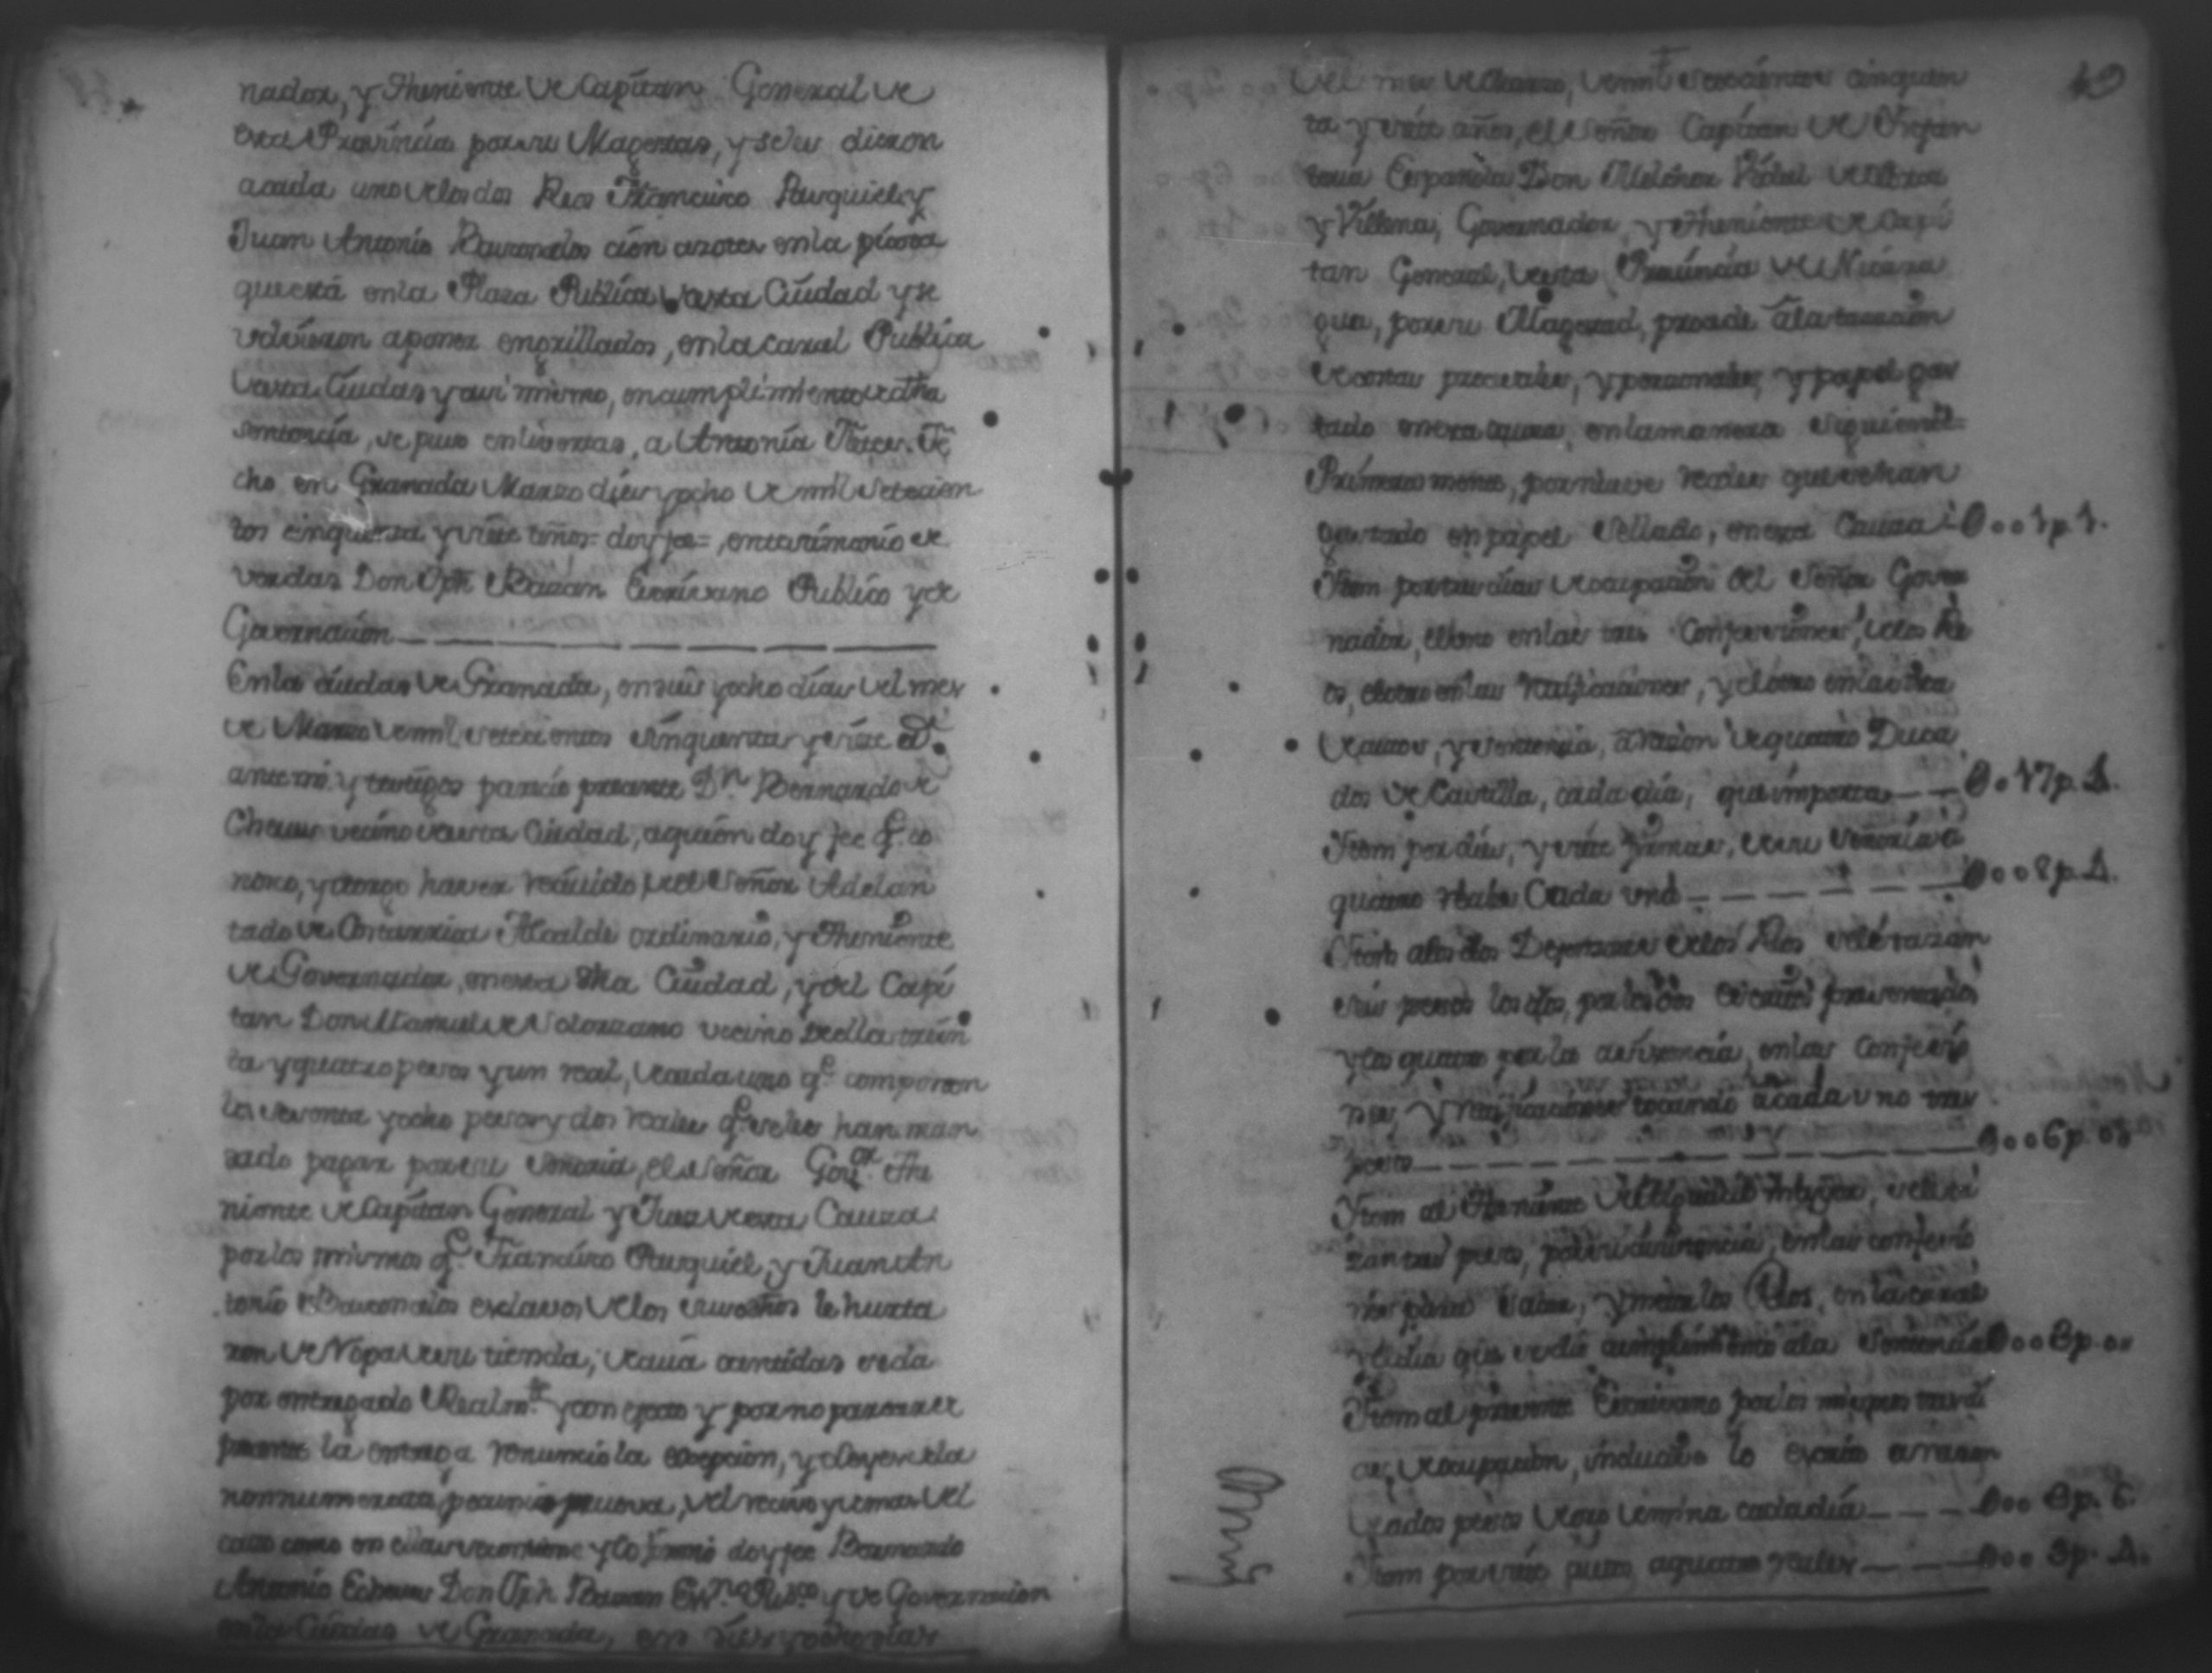 nador, y Theniente de Capitan General de
esta Provincia por su Magestad, y seles dieron
acada uno delos dos Reos Francisco Pasquiel, y
Juan Antonio cien azotes enla picota
que está enla Plaza Publica desta Ciudad y se
volvieron aponer engrillados, enla carsel Publica
desta Ciudad y asi mismo, encumplimiento dedha
sentencia, se puso enlivertad, a Antonia Fe
cho en Granada Marzo dies y ocho de mil setecien
tos cinquenta y siete años= doy fee=, entestimonio de
verdad Don Jph Bazán Escrivano Publico y de
Governacion
Enla ciudad de Granada, en dies y ocho dias del mes
de Marzo demil setecientos cinquenta y siete as.
ante mi y testigos parecio presente Dn. Bernardo de
vecino desta Ciudad, aquien doy fee qe. co
nosco, y otorgo haver recivido del Señor Adelan
tado de Costarrica Alcalde ordinario, y Theniente
de Governador, enesta dha Ciudad, y del Capi
tan Don Manuel de Solorzano vecino della trein
ta y quatro pesos y un real, decada uno qe. componen
los sesenta y ocho pesos y dos reales qe. seles han man
dado pagar por su Señoria, el Señor Govor. The
niente de Capitan General y Juez desta Cauza
por los mismos qe. Francisco Pasquiel, y Juan An
tonio esclavos delos susodhos le hurta
ron de Ropa desu tienda, decuia cantidad seda
por entregado Realmte. y con efecto y por no pareser de
presente la entrega renuncio la excepcion, y leyes dela
nonnumerata pecunia prueva, del recivo y demas del
caso como en ellas secontiene y lo firmó doy fee Bernardo
Antonio Don Jph Bazan Esno. Pubco. y de Governacion
enla Ciudad de Granada, en dies y ocho dias
49
del mes de Marzo, demil setecientos cinquen
ta y siete años, el Señor Capitan de Infan
teria Española Don Melchor Vidal de Lorca
y Villena, Governador, y Theniente de Capi
tan General, desta Provincia de Nicara
gua, por su Magestad, procede a la tassacion
decostas procesales, y personales, y papel gas
tado enesta causa, enlamanera siguiente=
Primeramente, por nueve reales que se han
gastado en papel Sellado, enesta Causa 0001p 1.
Item por tres dias deocupacion del Señor Gover
nador, eluno enlas tres Confesiones, delos Re
os, elotro enlas ratificaciones, y elotro enla vista
deautos, y sentencia, a razon de quatro Duca
dos de Castilla, cada dia, que importa 0017p. 4.
Item por dies, y siete firmas, desu Señoria a
quatro reales Cada una 0008p 4.
Item alos dos Defensores delos Reos seles tazan
seis pesos los dos, por los dos escritos presentados
y los quatro por la asistencia, enlas Confesio
nes, y ratificaciones tocando acada uno tres
pesos 0006p 00
Item al Theniente de Alguacil mayor, seleta
zan tres pesos, por su asistencia, enlas confesio
nes para sacar, y meter los Reos, enla carsel
y eldia que sedio cumplimiento ala Sentencia 0003p. 00
Item al presente Escrivano por los mismos tres di
as, deocupacion, inclusibe lo escrito a razon
dedos pesos demina cadadia
Item quatro reales